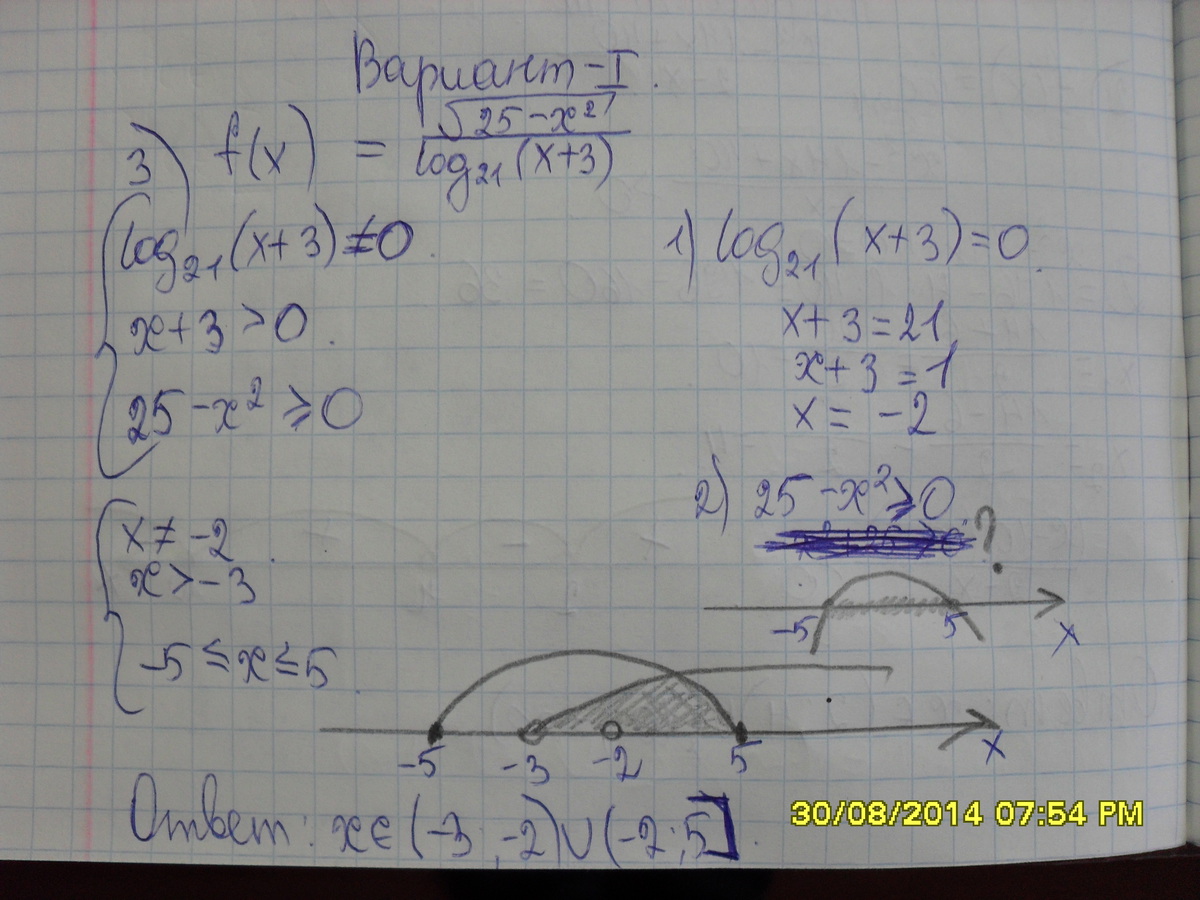 Вариант-I.
3) f(x) = √(25-x²) / log₂₁(x+3)
log₂₁(x+3)≠0.
x+3>0.
25-x²⩾0
x≠-2.
x>-3
-5≤x≤5.
1) log₂₁(x+3)=0.
x+3=21
x+3=1
x=-2
2) 25-x²⩾0.
?
-5 5 x
-5 -3 -2 5 x
Ответ: x∈(-3;-2)∪(-2;5].
30/08/2014 07:54 PM